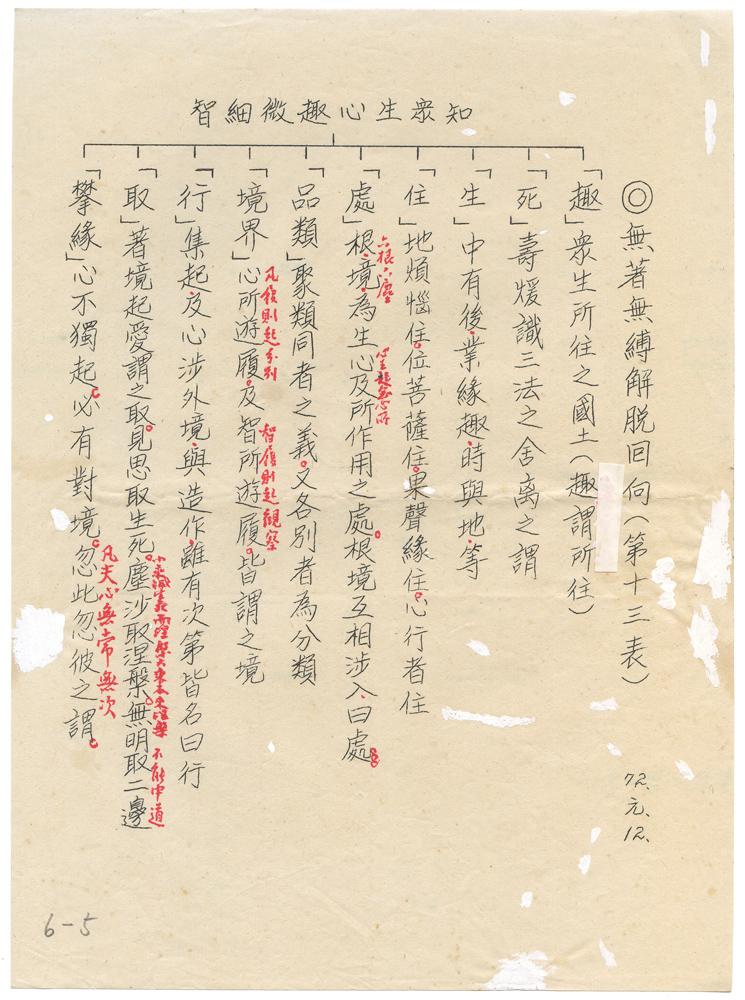 ◎無著無縛解脫回向（第十三表）
72.元.12.
知眾生心趣微細智
「趣」眾生所往之國土（趣謂所往）
「死」壽煖識三法之舍离之謂
「生」中有後業緣趣時與地等
「住」地煩惱住位菩薩住果聲緣住心行者住
「處」根境為生心及所作用之處根境互相涉入曰處
六根六塵
「品類」聚類同者之義又各別者為分類
「境界」心所遊履及智所遊履皆謂之境
凡履則起分別
智履則起觀察
「行」集起及心涉外境與造作雖有次第皆名曰行
「取」著境起愛謂之取見思取生死塵沙取涅槃無明取二邊
不能中道
「攀緣」心不獨起必有對境忽此忽彼之謂
凡夫心無常無次
6-5